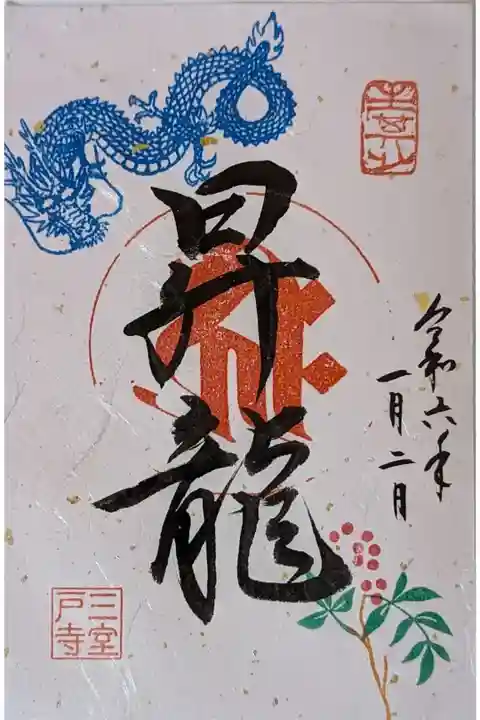 昇龍
令和六年
一月二日
三室
戸寺